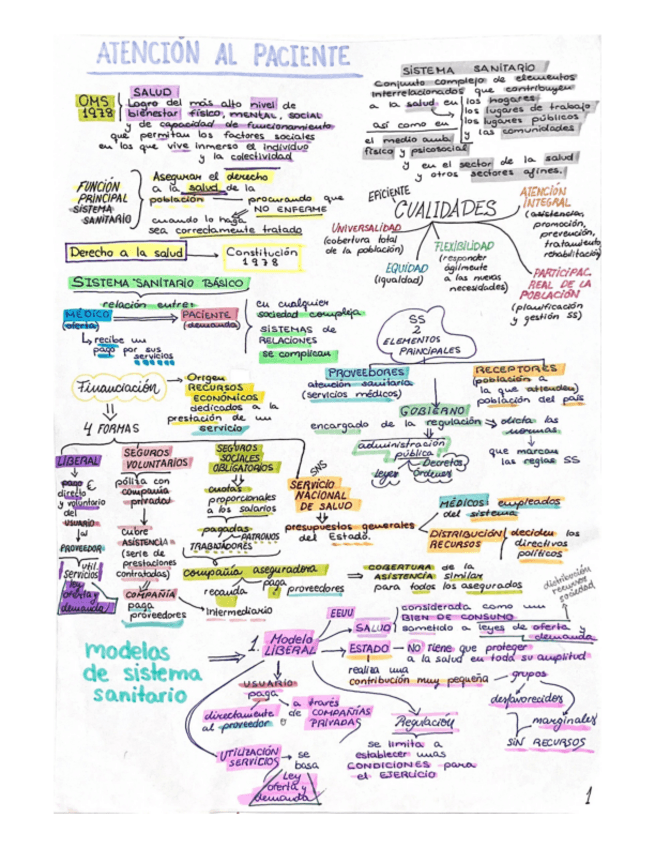 ATENCIÓN AL PACIENTE
OMS
1978
SALUD
Logro del más alto nivel de
bienestar físico, MENTAL, SOCIAL
y de capacidad de funcionamiento
que permitan los factores sociales
en los que vive inmerso el individuo
y la colectividad
SISTEMA SANITARIO
Conjunto complejo de elementos
interrelacionados que contribuyen
a la salud en
los hogares
los lugares de trabajo
los lugares públicos
y las comunidades
así como en
el medio amb.
físico y psicosocial
y en el sector de la salud
y otros sectores afines.
FUNCIÓN
PRINCIPAL
SISTEMA
SANITARIO
Asegurar el derecho
a la salud de la
población
procurando que
NO ENFERME
cuando lo haga
sea correctamente tratado
Derecho a la salud
Constitución
1978
CUALIDADES
EFICIENTE
UNIVERSALIDAD
(cobertura total
de la población)
EQUIDAD
(igualdad)
FLEXIBILIDAD
(responder
ágilmente
a las nuevas
necesidades)
ATENCIÓN
INTEGRAL
(asistencia,
promoción,
prevención,
tratamiento
rehabilitación)
PARTICIPAC.
REAL DE LA
POBLACIÓN
(planificación
y gestión SS)
SISTEMA SANITARIO BÁSICO
relación entre:
MÉDICO
(oferta)
PACIENTE
(demanda)
recibe un
pago por sus
servicios
en cualquier
sociedad compleja
SISTEMAS DE
RELACIONES
se complican
SS
2
ELEMENTOS
PRINCIPALES
PROVEEDORES
atención sanitaria
(servicios médicos)
RECEPTORES
(población a
la que atienden)
población del país
GOBIERNO
encargado de la regulación
dicta las
normas
que marcan
las reglas SS
administración
pública
Leyes
Decretos
Órdenes
Financiación
Origen
RECURSOS
ECONÓMICOS
dedicados a la
prestación de un
servicio
4 FORMAS
LIBERAL
pago €
directo
y voluntario
del
USUARIO
al
PROVEEDOR
util.
servicios
ley
oferta y
demanda
SEGUROS
VOLUNTARIOS
póliza con
compañía
privada
cubre
ASISTENCIA
(serie de
prestaciones
contratadas)
COMPAÑÍA
paga
proveedores
SEGUROS
SOCIALES
OBLIGATORIOS
cuotas
proporcionales
a los salarios
pagadas
PATRONOS
TRABAJADORES
compañía aseguradora
recauda
paga
proveedores
Intermediario
COBERTURA de la
ASISTENCIA similar
para todos los asegurados
SNS
SERVICIO
NACIONAL
DE SALUD
presupuestos generales
del Estado.
MÉDICOS: empleados
del sistema
DISTRIBUCIÓN
RECURSOS
deciden los
directivos
políticos
modelos
de sistema
sanitario
1. Modelo
LIBERAL
EEUU
SALUD
considerada como un
BIEN DE CONSUMO
sometido a leyes de oferta y
demanda
distribución
recursos
sociedad
ESTADO
NO tiene que proteger
a la salud en toda su amplitud
realiza una
contribución muy pequeña
grupos
desfavorecidos
marginales
SIN RECURSOS
USUARIO
paga
directamente
al proveedor
a través
de COMPAÑÍAS
PRIVADAS
Regulación
se limita a
establecer unas
CONDICIONES para
el EJERCICIO
UTILIZACIÓN
SERVICIOS
se
basa
Ley
oferta y
demanda
1